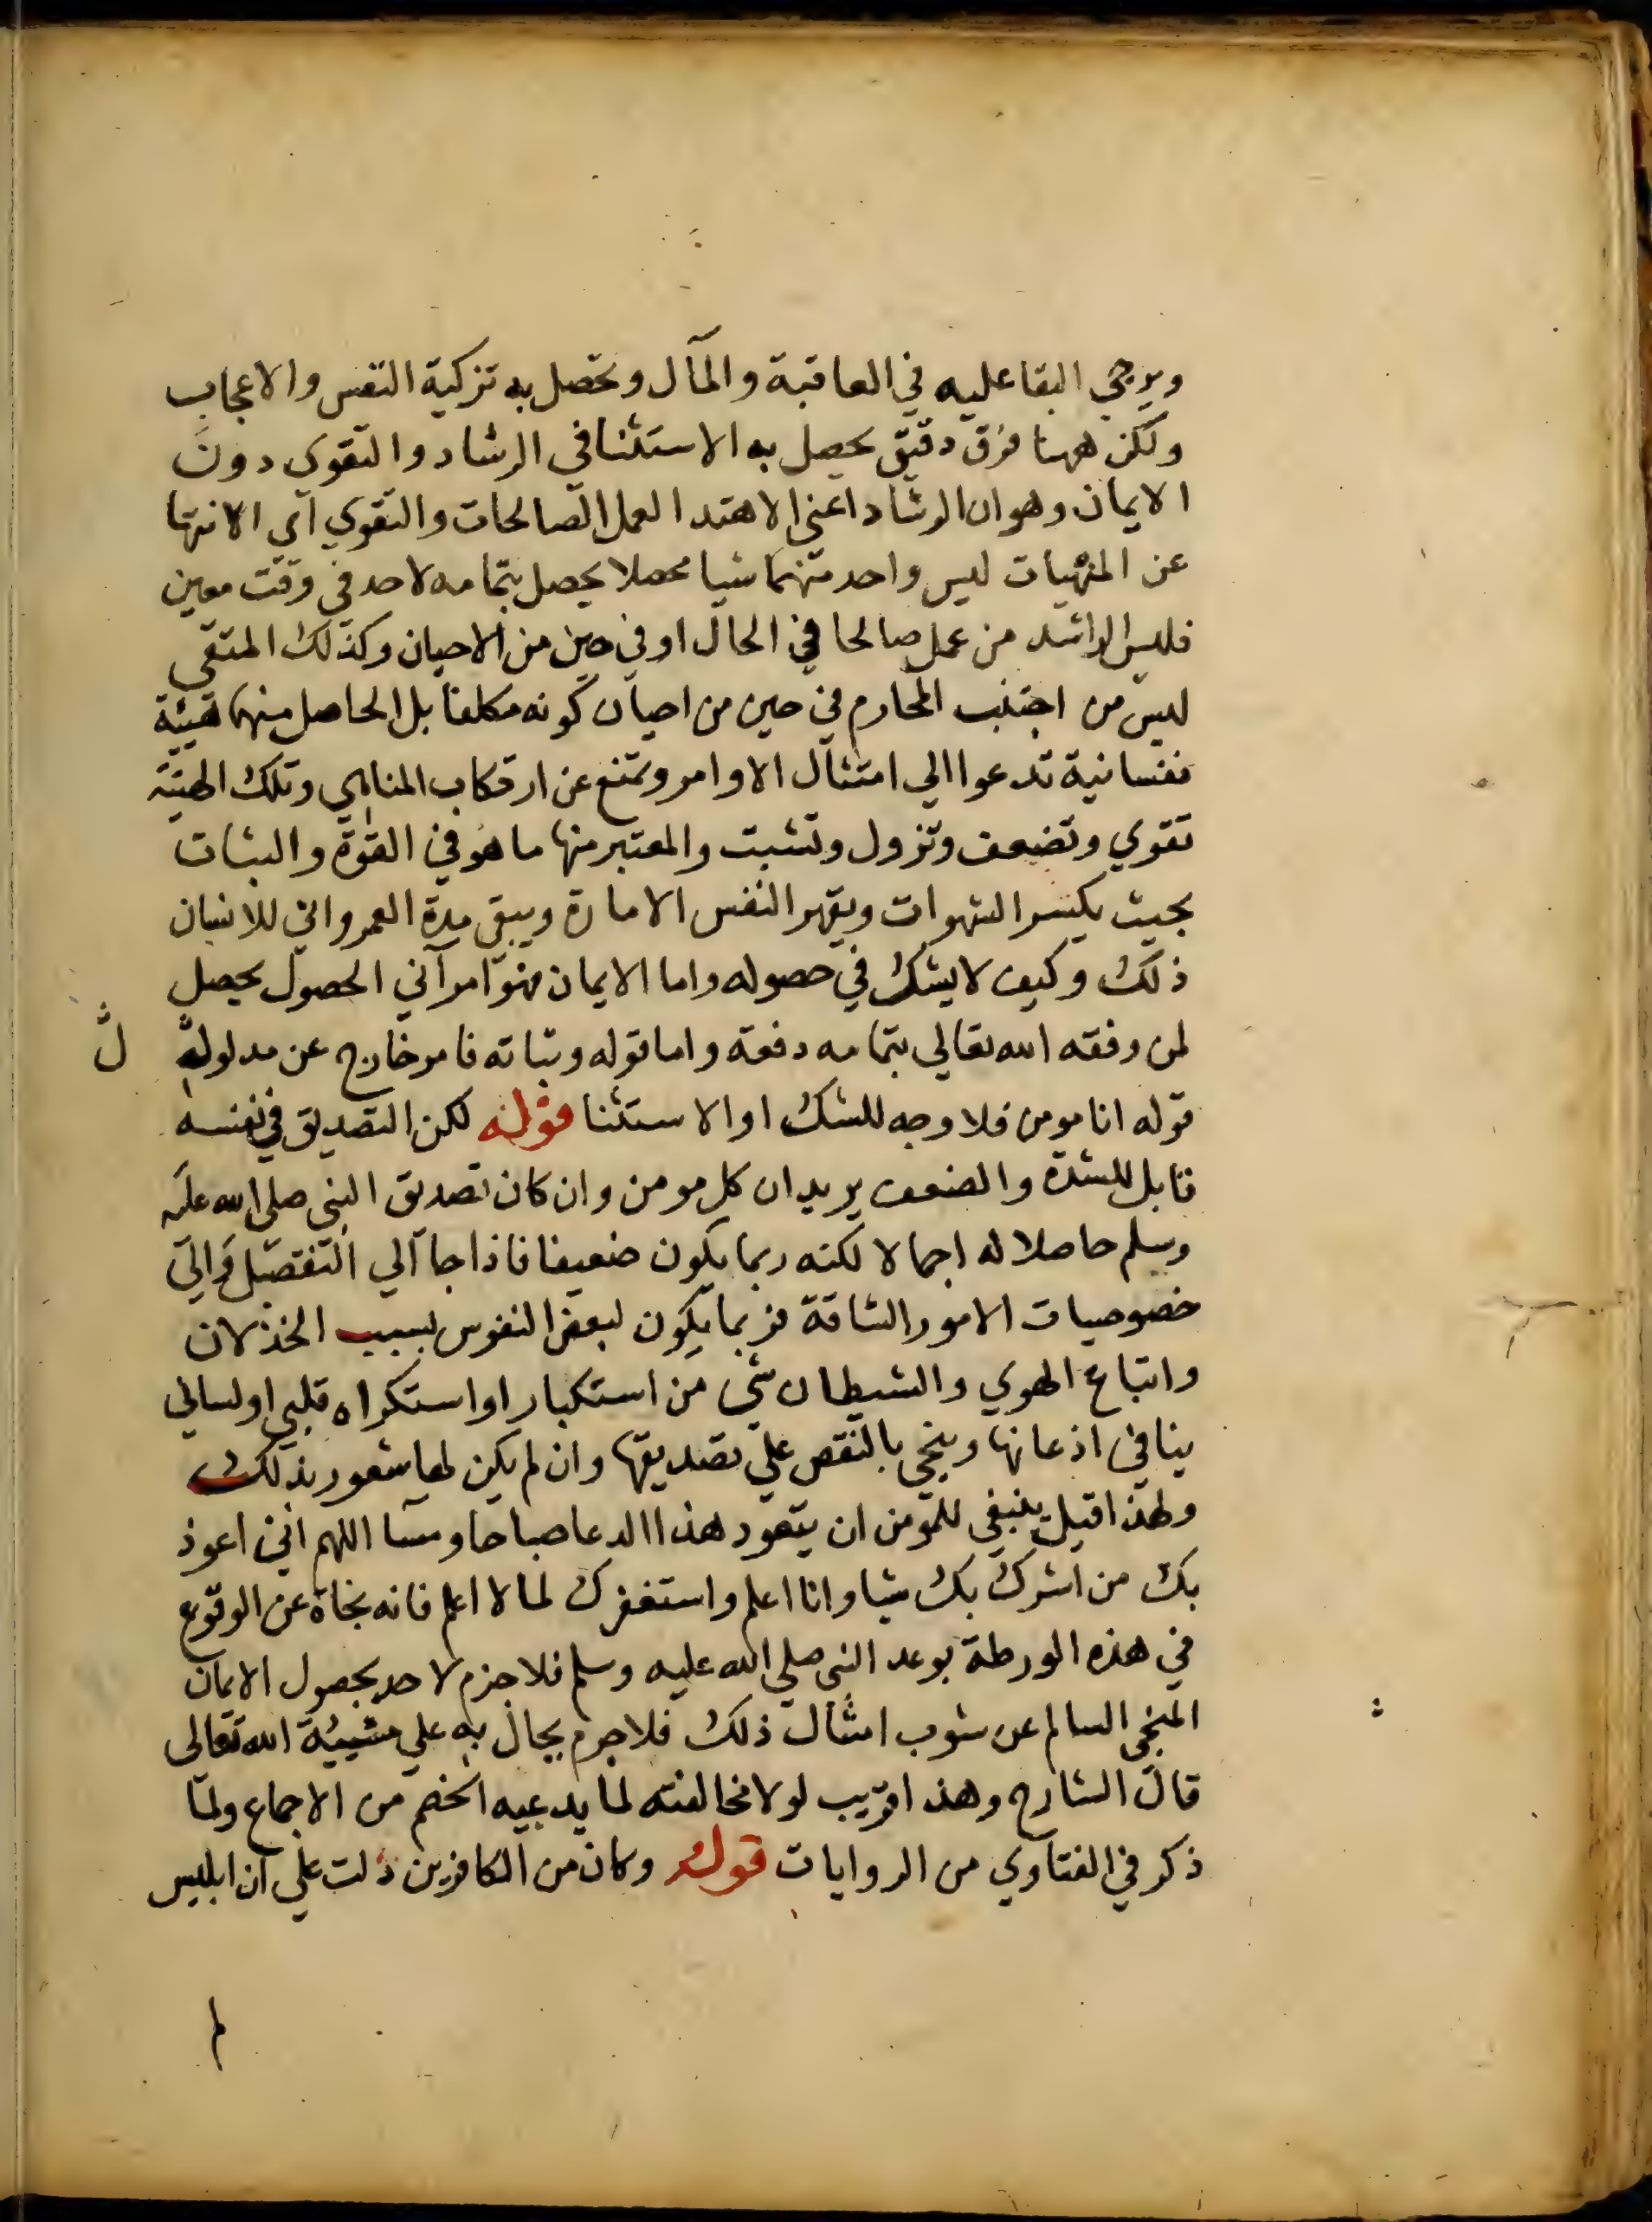 ويرجي البقا عليه في العاقبة والمآل وتحصل به تزكية النفس والاعجاب
ولكن ههنا فرق دقيق يحصل به الاستثنا في الرشاد والتقوي دون
الايمان وهوان الرشاد اعني الاهتدا لعمل الصالحات والتقوي اي الانتها
عن المنهيات ليس واحد منهما شيا محصلا يحصل بتمامه لاحد في وقت معين
فليس الراشد من عمل صالحا في الحال او في حين من الاحيان وكذلك المتقي
ليس من اجتنب المحارم في حين من احيان كونه مكلفا بل الحاصل منهما هيئة
نفسانية تدعوا الي امتثال الاوامر وتمنع عن ارتكاب المناهي وتلك الهيئة
تقوي وتضعف وتزول وتثبت والمعتبر منها ما هو في القوة والثبات
بحيث يكسر الشهوات ويقهر النفس الامارة ويبقي مدة العمر واني للانسان
ذلك وكيف لا يشك في حصوله واما الايمان فهو امر آني الحصول يحصل
لمن وفقه الله تعالي بتمامه دفعة واما قوله وثباته فامر خارج عن مدلوله
ل
قوله انا مومن فلا وجه للشك او الاستثنا قوله لكن التصديق في نفسه
قابل للشدة والضعف يريد ان كل مومن وان كان تصديق النبي صلي الله عليه
وسلم حاصلا له اجمالا لكنه ربما يكون ضعيفا فاذا جا الي التفصيل والي
خصوصيات الامور الشاقة فربما يكون لبعض النفوس بسبب الخذلان
واتباع الهوي والشيطان شي من استكبار او استكراه قلبي او لساني
ينافي اذعانها وينجي بالنقص علي تصديقها وان لم يكن لها شعور بذلك
ولهذا قيل ينبغي للمومن ان يتعود هذا الدعا صباحا ومسا اللهم اني اعوذ
بك من اشرك بك شيا وانا اعلم واستغفرك لما لا اعلم فانه نجاة عن الوقوع
في هذه الورطة بوعد النبي صلي الله عليه وسلم فلا جزم لاحد بحصول الايمان
المنجي السالم عن شوب امثال ذلك فلا جرم يحال به علي مشيئة الله تعالى
قال الشارح وهذا قريب لولا مخالفته لما يدعيه الخصم من الاجماع ولما
ذكر في الفتاوي من الروايات قوله وكان من الكافرين دلت علي ان ابليس
لم